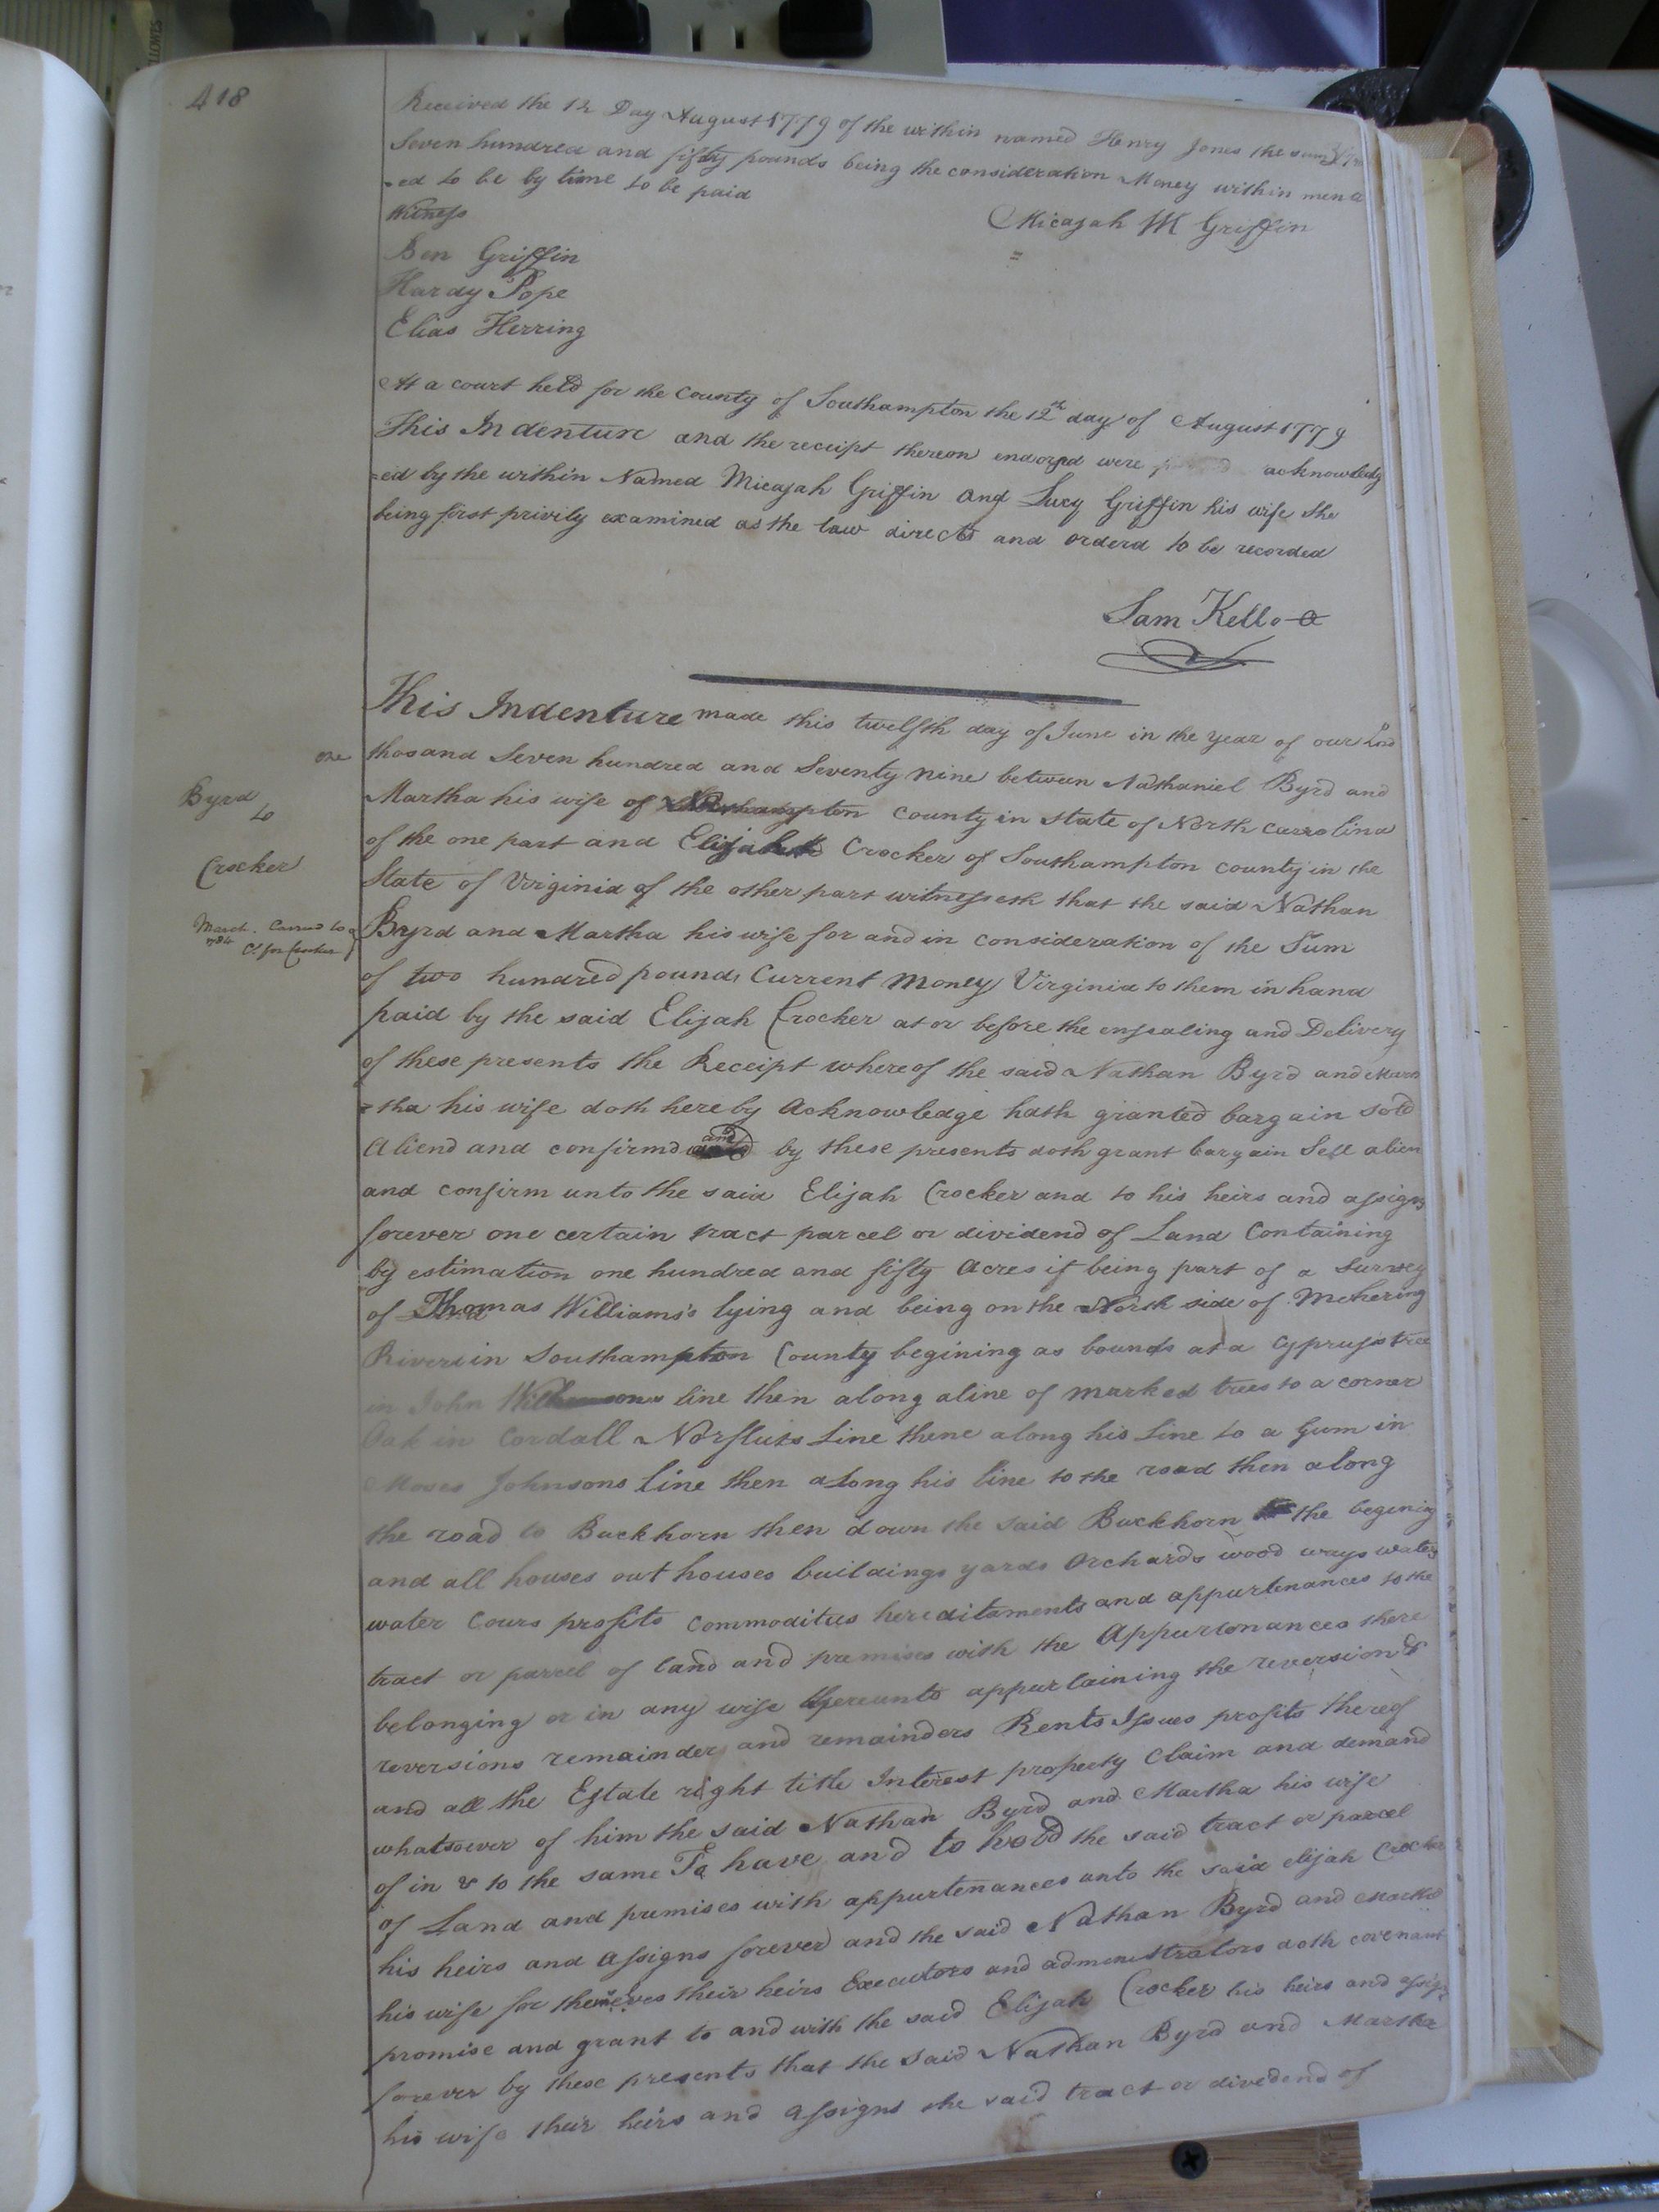 418
Received the 12 Day August 1779 of the within named Henry Jones the sum of
Seven hundred and fifty pounds being the consideration Money within men
=ed to be by time to be paid
Witness
Micajah M Griffin
Ben Griffin
Hardy Pope
Elias Herring
At a court held for the County of Southampton the 12th day of August 1779
This Indenture and the receipt thereon endorsd were acknowledg
=ed by the within Named Micajah Griffin and Lucy Griffin his wife She
being first privily examined as the law directs and orderd to be recorded
Sam Kello
This Indenture made this twelfth day of June in the year of our Lord
one thosand Seven hundred and Seventy nine between Nathaniel Byrd and
Byrd
to
Crocker
Martha his wife of Northampton County in State of North Carrolina
of the one part and Elijah Crocker of Southampton county in the
State of Virginia of the other part witnesseth that the said Nathan
March
1784
Byrd and Martha his wife for and in consideration of the Sum
of two hundred pounds Current Money Virginia to them in hand
paid by the said Elijah Crocker at or before the ensealing and Delivery
of these presents the Receipt whereof the said Nathan Byrd and Mar
=tha his wife doth hereby Acknowledge hath granted bargain sold
Aliend and confirmd and by these presents doth grant bargain Sell alien
and confirm unto the said Elijah Crocker and to his heirs and assigns
forever one certain tract parcel or dividend of Land Containing
by estimation one hundred and fifty Acres it being part of a Survey
of Thomas Williams's lying and being on the North side of Mehering
River in Southampton County begining as bounds at a Cypruss tree
in John line then along a line of marked trees to a corner
Oak in Cordall Norfluts Line thene along his Line to a Gum in
Moses Johnsons line then along his line to the road then along
the road to Buckhorn then down the said Buckhorn to the begening
and all houses out houses buildings yards Orchards wood ways waters
water Cours profits Commoditus hereditaments and appurtenances to the
tract or parcel of land and premises with the Appurtenances there
belonging or in any wise thereunto appurtaining the reversion &
reversions remainder and remainders Rents Issues profits thereof
and all the Estate right title Interest property Claim and demand
whatsoever of him the said Nathan Byrd and Martha his wife
of in & to the same To have and to hold the said tract or parcel
of Land and premises with appurtenances unto the said elijah Crocker
his heirs and assigns forever and the said Nathan Byrd and Martha
his wife for themselves their heirs Executors and administrators doth covenant
promise and grant to and with the said Elijah Crocker his heirs and assigns
forever by these presents that the said Nathan Byrd and Martha
his wife their heirs and assigns the said tract or dividend of